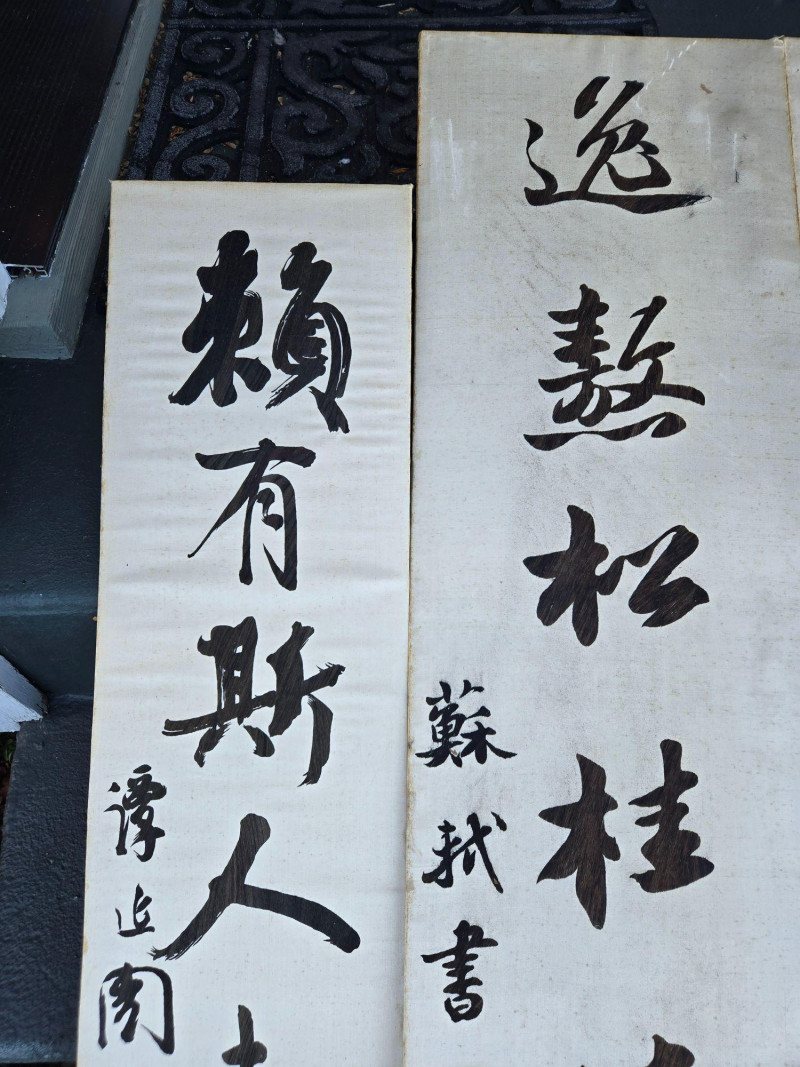 逸熬松桂
蘇軾書
賴有斯人
譚延闓